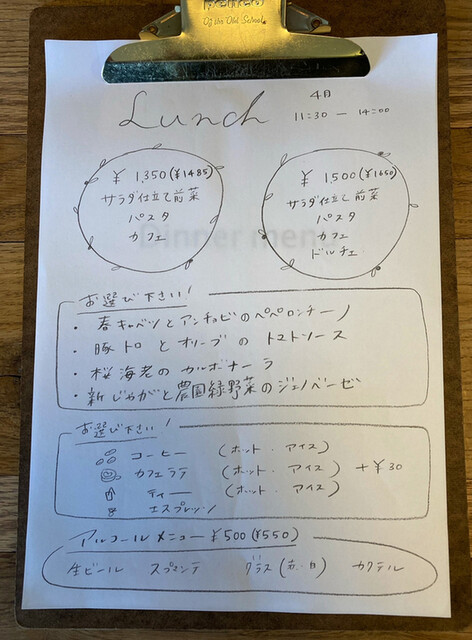 Of the Old School
Lunch
4月
11:30 — 14:00
¥ 1,350 (¥1485)
サラダ仕立て前菜
パスタ
カフェ
¥ 1,500 (¥1650)
サラダ仕立て前菜
パスタ
カフェ
ドルチェ
Dinner menu
お選び下さい!
・春キャベツとアンチョビのペペロンチーノ
・豚トロとオリーブのトマトソース
・桜海老のカルボナーラ
・新じゃがと農園緑野菜のジェノベーゼ
お選び下さい!
コーヒー (ホット・アイス)
カフェラテ (ホット・アイス) +¥30
ティー (ホット・アイス)
エスプレッソ
アルコールメニュー ¥500 (¥550)
生ビール スプマンテ グラス(赤・白) カクテル